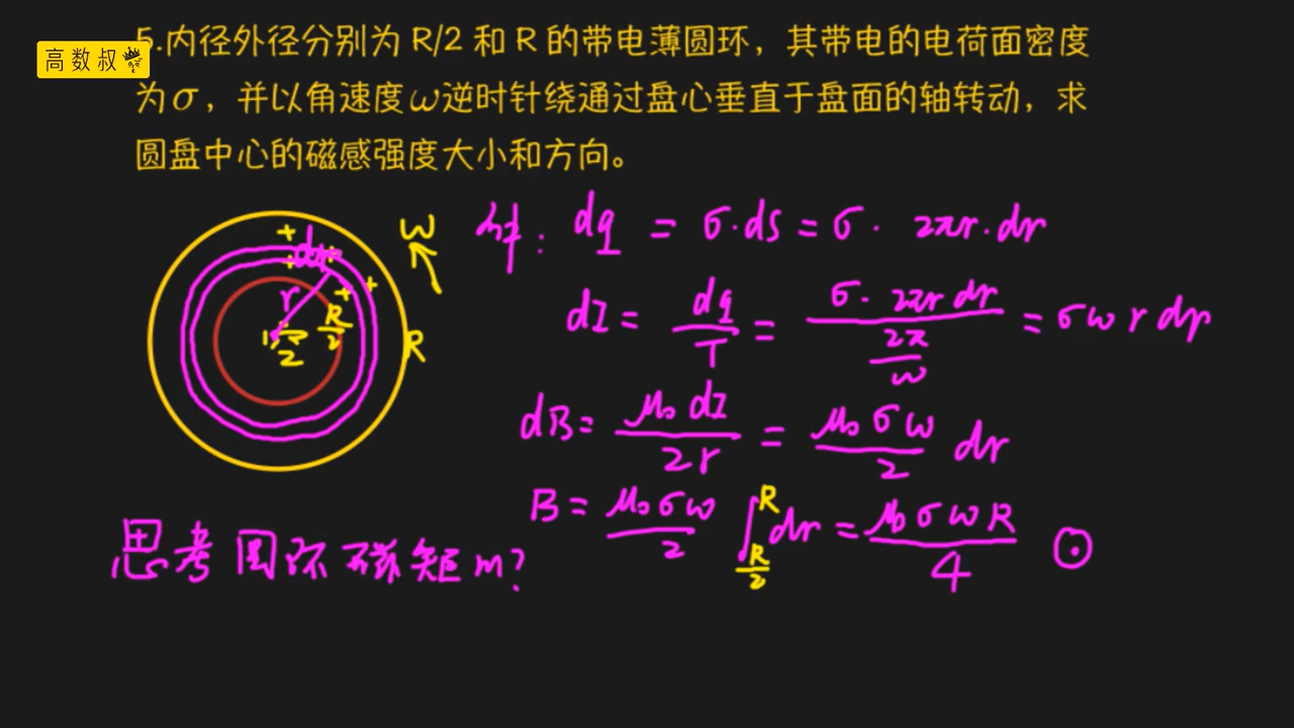 高数叔
5.内径外径分别为 R/2 和 R 的带电薄圆环，其带电的电荷面密度
为σ，并以角速度ω逆时针绕通过盘心垂直于盘面的轴转动，求
圆盘中心的磁感强度大小和方向。
解: dq = σ·ds = σ· 2πr·dr
dI = dq/T = (σ· 2πr dr)/(2π/ω) = σω r dr
dB = μ₀ dI/2r = μ₀σω/2 dr
B = μ₀σω/2 ∫_{R/2}^{R} dr = μ₀σωR/4 ⊙
思考 圆环 磁矩 m?
+ ω
dr
+ + +
r R/2 R